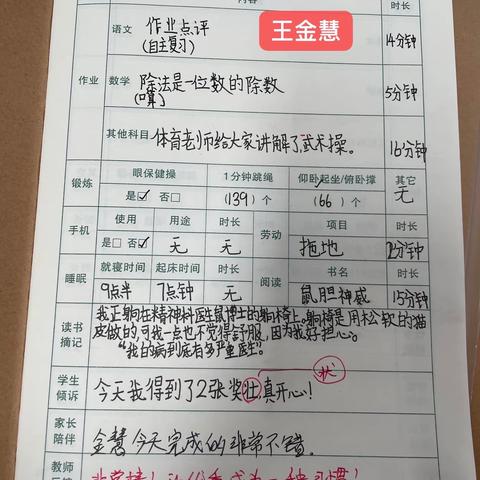 内容
时长
王金慧
语文
作业点评
(自主复习)
14分钟
作业
数学
除法是一位数的除数
(口算)
5分钟
其他科目
体育老师给大家讲解了武术操。
16分钟
锻炼
眼保健操
1分钟跳绳
仰卧起坐/俯卧撑
其它
是☑ 否□
(139)个
(66)个
无
手机
使用
用途
时长
劳动
项目
时长
是□ 否☑
无
无
拖地
分钟
睡眠
就寝时间
起床时间
时长
阅读
书名
时长
9点半
7点钟
无
鼠胆神威
15分钟
读书
摘记
我正躺在精神科医生鼠博士的躺椅上。躺椅是用松软的猫
皮做的,可我一点也不觉得舒服,因为我好担心。
“我的病到底有多严重医生。
状
学生
倾诉
今天我得到了2张奖壮,真开心!
家长
陪伴
金慧今天完成的非常不错。
教师